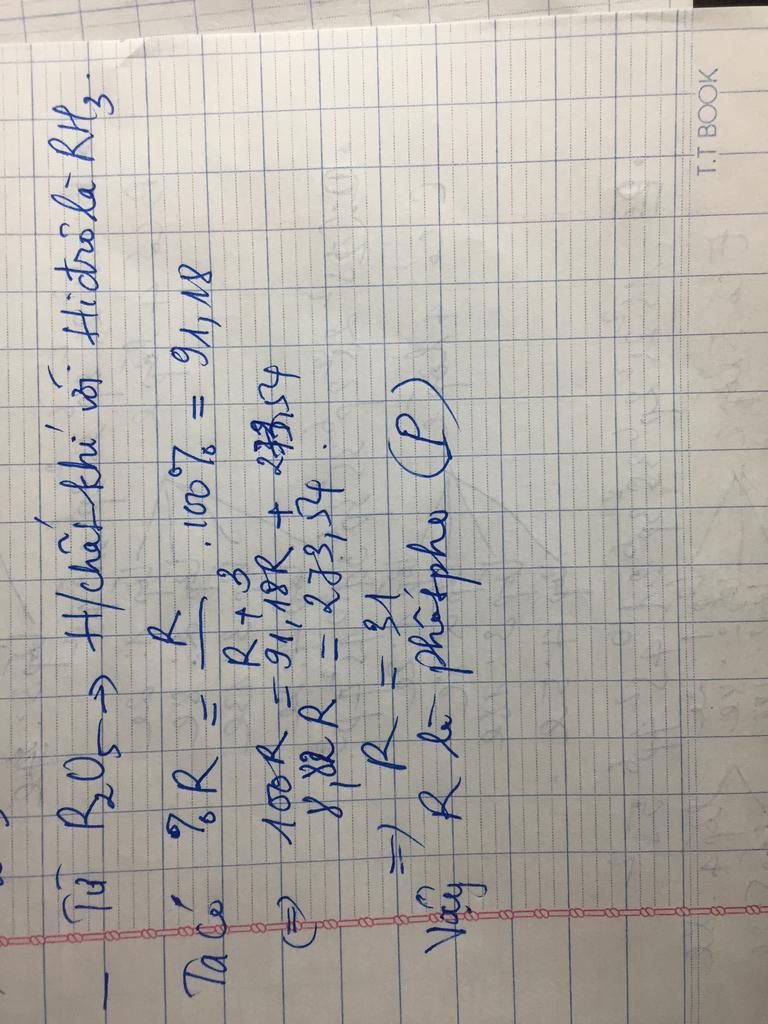 - Từ R2O5 → H/chất khí với Hiđrô là RH3.
Ta có %R = R / R + 3 .100% = 91,18
(=) 100R = 91,18R + 273,54
8,82R = 273,54.
=) R = 31
Vậy R là phốtpho (P)
T.T BOOK